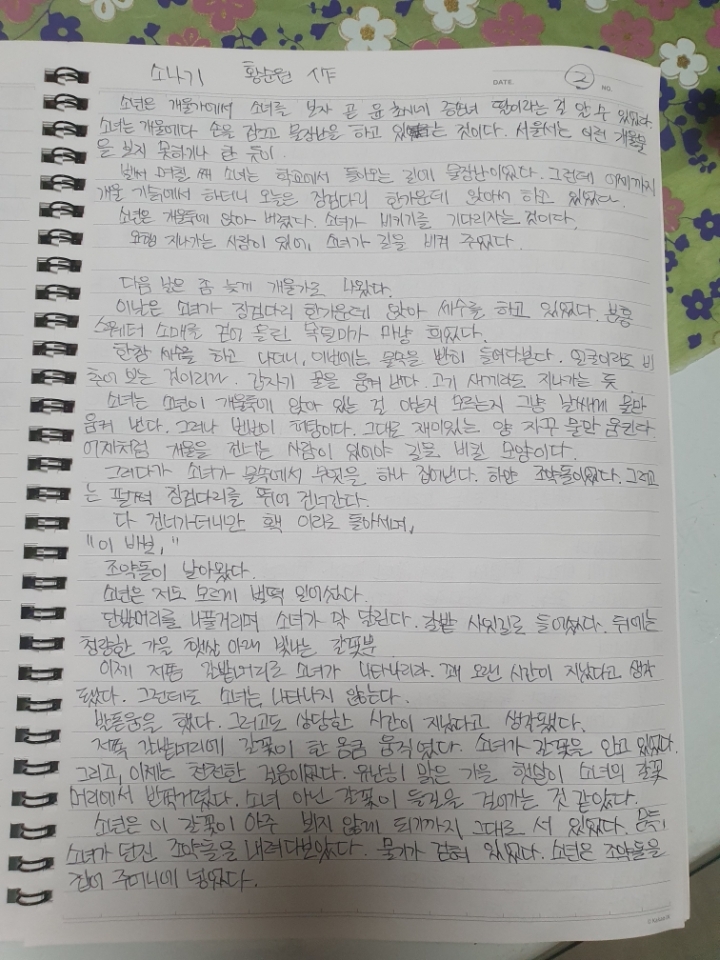 소나기 황순원 作 DATE. ② NO.
소년은 개울가에서 소녀를 보자 곧 윤 초시네 증손녀 딸이라는 걸 알 수 있었다.
소녀는 개울에다 손을 잠그고 물장난을 하고 있는 것이다. 서울서는 이런 개울물
을 보지 못하거나 한 듯이.
벌써 며칠 째 소녀는 학교에서 돌아오는 길에 물장난이었다. 그런데 어제까지
개울 기슭에서 하더니 오늘은 징검다리 한가운데 앉아서 하고 있었다.
소년은 개울둑에 앉아 버렸다. 소녀가 비키기를 기다리자는 것이다.
요행 지나가는 사람이 있어, 소녀가 길을 비켜 주었다.
다음 날은 좀 늦게 개울가로 나왔다.
이날은 소녀가 징검다리 한가운데 앉아 세수를 하고 있었다. 분홍
스웨터 소매를 걷어 올린 목덜미가 마냥 희었다.
한참 세수를 하고 나더니, 이번에는 물속을 빤히 들여다본다. 얼굴이라도 비
추어 보는 것이리라. 갑자기 물을 움켜 낸다. 고기 새끼라도 지나가는 듯.
소녀는 소년이 개울둑에 앉아 있는 걸 아는지 모르는지 그냥 날쌔게 물만
움켜 낸다. 그러나 번번이 허탕이다. 그대로 재미있는 양 자꾸 물만 움킨다.
어제처럼 개울을 건너는 사람이 있어야 길을 비킬 모양이다.
그러다가 소녀가 물속에서 무엇을 하나 집어낸다. 하얀 조약돌이었다. 그리고
는 팔짝 징검다리를 뛰어 건너간다.
다 건너가더니만 홱 이리로 돌아서며,
"이 바보,"
조약돌이 날아왔다.
소년은 저도 모르게 벌떡 일어섰다.
단발머리를 나풀거리며 소녀가 막 달린다. 갈밭 사잇길로 들어섰다. 뒤에는
청량한 가을 햇살 아래 빛나는 갈꽃뿐
이제 저쯤 갈밭머리로 소녀가 나타나리라. 꽤 오랜 시간이 지났다고 생각
됐다. 그런데도 소녀는 나타나지 않는다.
발돋움을 했다. 그러고도 상당한 시간이 지났다고 생각됐다.
저쪽 갈밭머리에 갈꽃이 한 옴큼 움직였다. 소녀가 갈꽃을 안고 있었다.
그리고, 이제는 천천한 걸음이었다. 유난히 맑은 가을 햇살이 소녀의 갈꽃
머리에서 반짝거렸다. 소녀 아닌 갈꽃이 들길을 걸어가는 것 같았다.
소년은 이 갈꽃이 아주 뵈지 않게 되기까지 그대로 서 있었다. 문득,
소녀가 던진 조약돌을 내려다보았다. 물기가 걷혀 있었다. 소년은 조약돌을
집어 주머니에 넣었다.